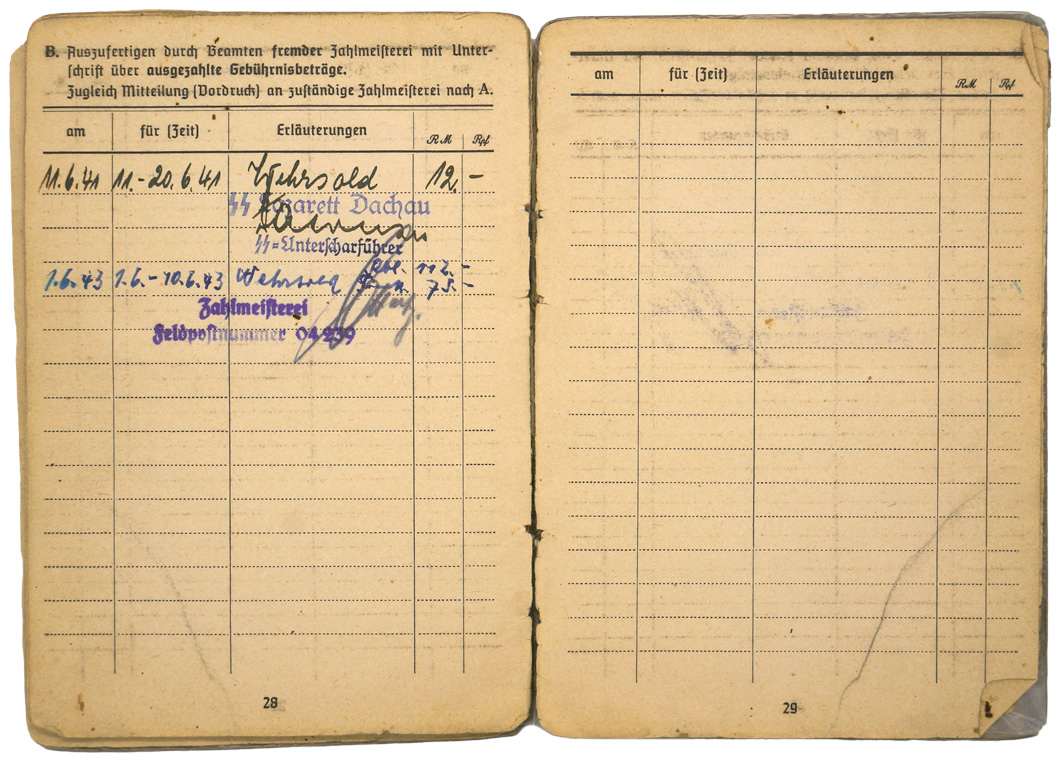 B. Auszufertigen durch Beamten fremder Zahlmeisterei mit Unter-
schrift über ausgezahlte Gebührnisbeträge.
Zugleich Mitteilung (Vordruck) an zuständige Zahlmeisterei nach A.
am für (Zeit) Erläuterungen RM Rpf
11.6.41 11.-20.6.41 Wehrsold 12.-
SS Lazarett Dachau
SS-Unterscharführer
1.6.43 1.6.-10.6.43 Wehrsold 112.-
75.-
Zahlmeisterei
Feldpostnummer 04239
28
am für (Zeit) Erläuterungen RM Rpf
29